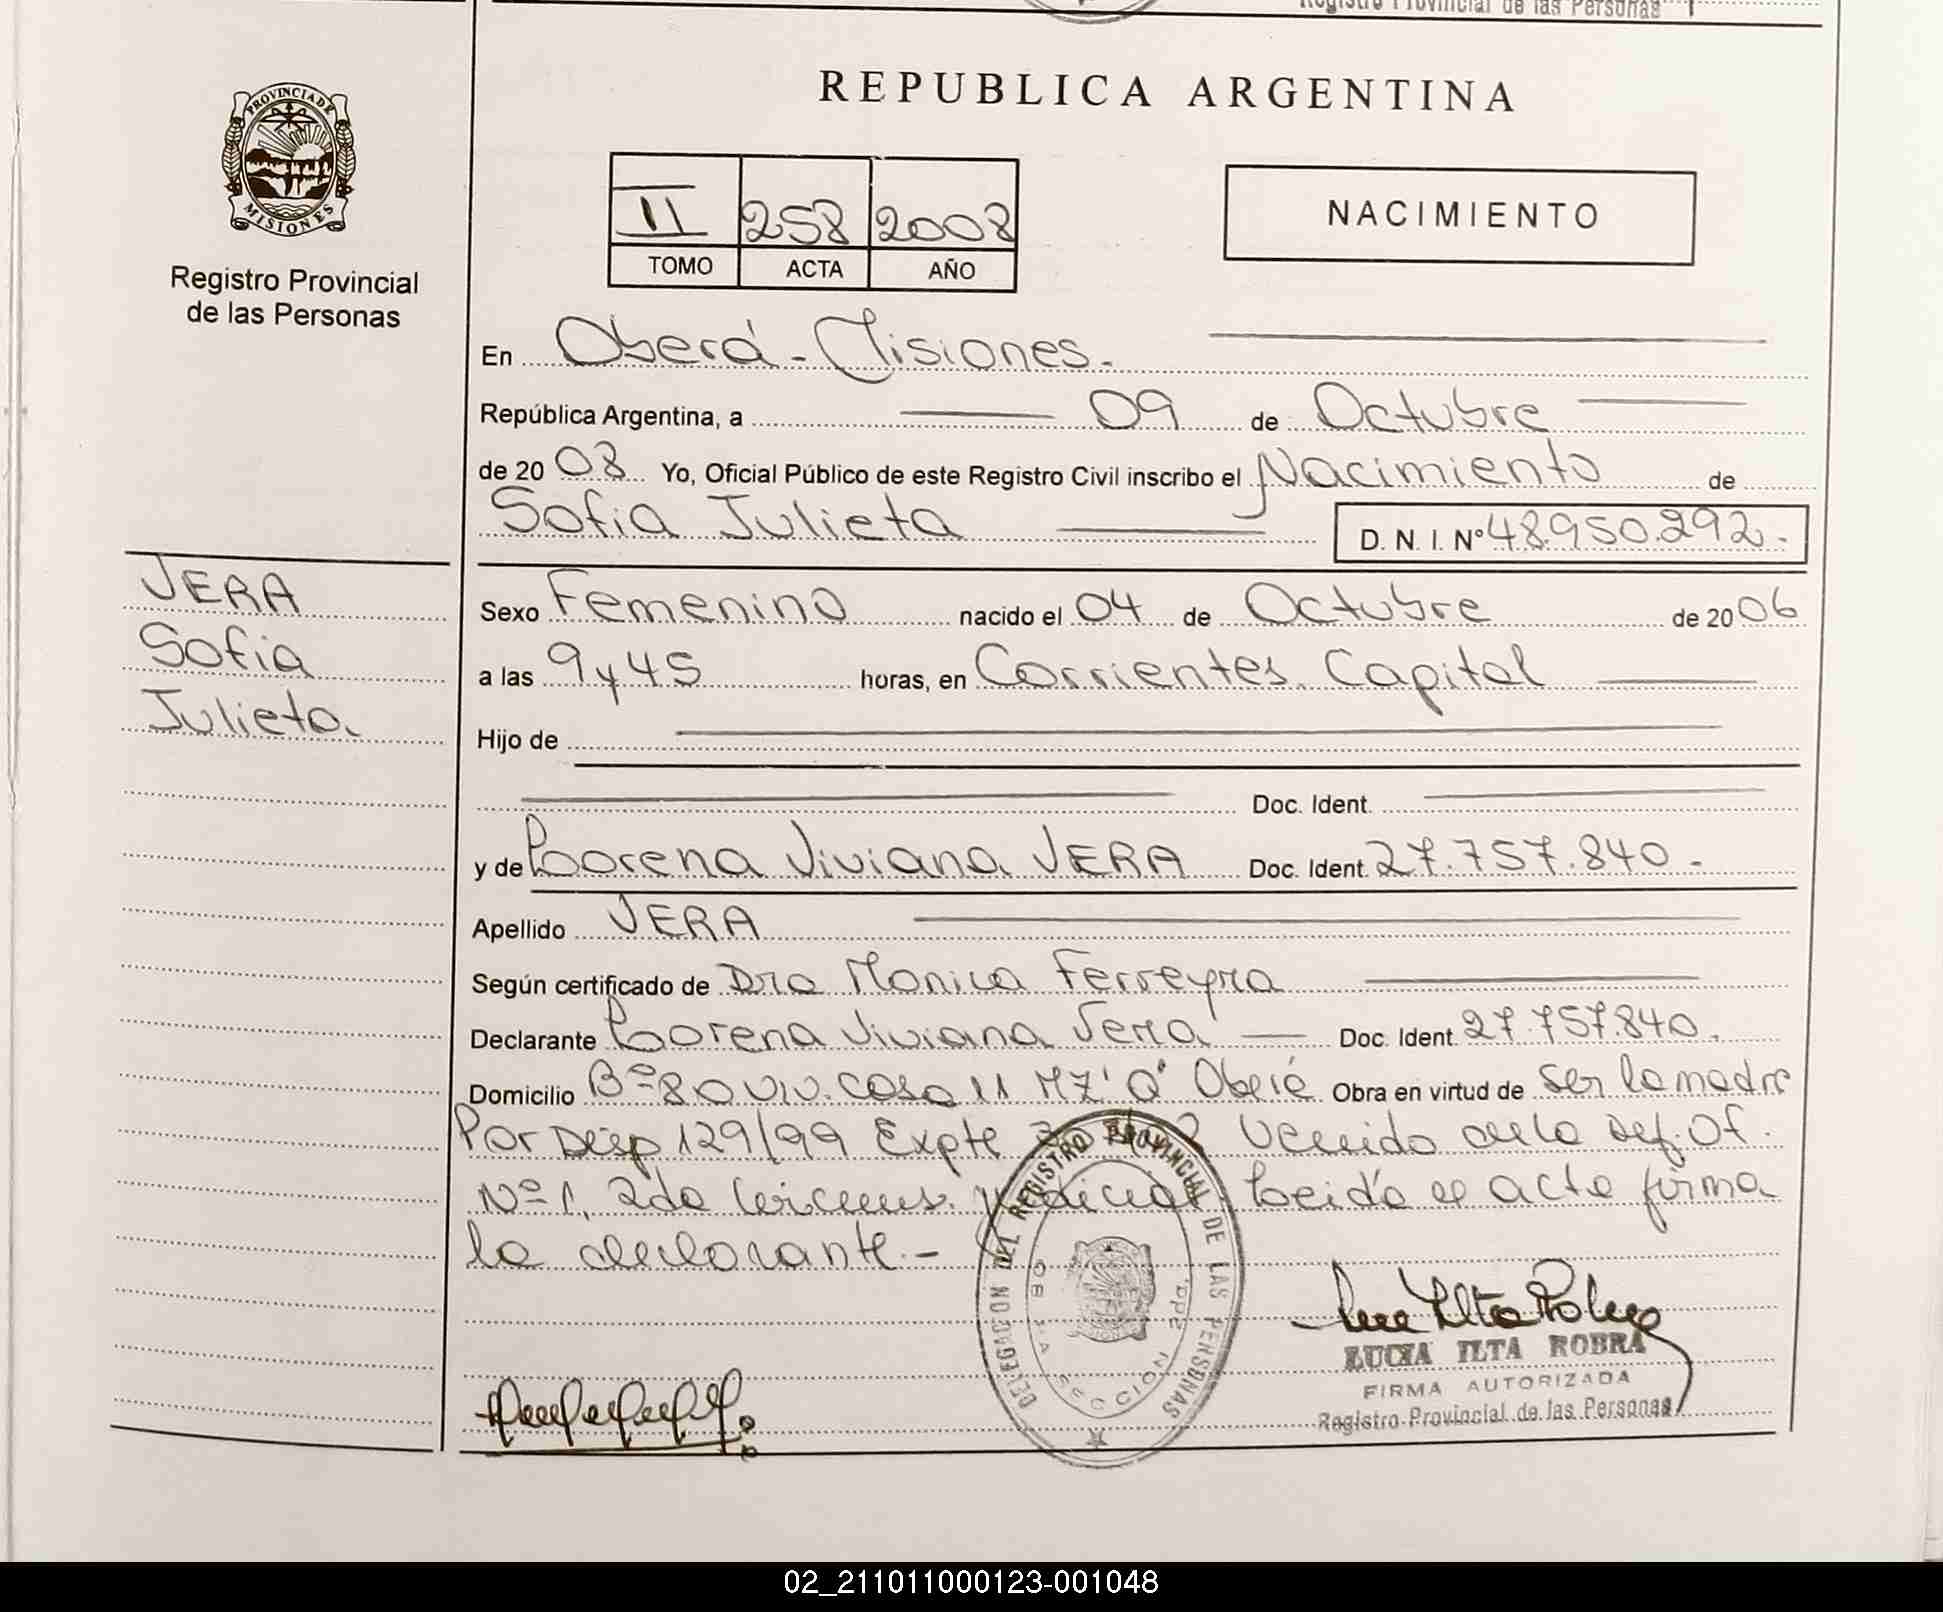 Registro Provincial de las Personas
REPUBLICA ARGENTINA
PROVINCIA DE
MISIONES
Registro Provincial
de las Personas
II 258 2008
TOMO ACTA AÑO
NACIMIENTO
En Oberá - Misiones.
República Argentina, a 09 de Octubre
de 20 08 Yo, Oficial Público de este Registro Civil inscribo el Nacimiento de
Sofia Julieta D. N. I. Nº 48.950.292.
VERA
Sofia
Julieta.
Sexo Femenino nacido el 04 de Octubre de 20 06
a las 9 y 45 horas, en Corrientes. Capital
Hijo de
Doc. Ident.
y de Lorena Viviana VERA Doc. Ident. 27.757.840.-
Apellido VERA
Según certificado de Dra Monica Ferreyra
Declarante Lorena Viviana Vera Doc. Ident. 27.757.840.
Domicilio Bº 80 viv. Casa 11 MZ "Q" Oberá Obra en virtud de ser la madre
Por Disp 129/99 Expte Venido de la Def. Of.
Nº 1, 2da Leida el acta firma
la declarante.-
DELEGACION DEL REGISTRO PROVINCIAL DE LAS PERSONAS
OBERA SECCION 2da.
LUCIA ILTA ROBRA
FIRMA AUTORIZADA
Registro Provincial de las Personas
02_211011000123-001048